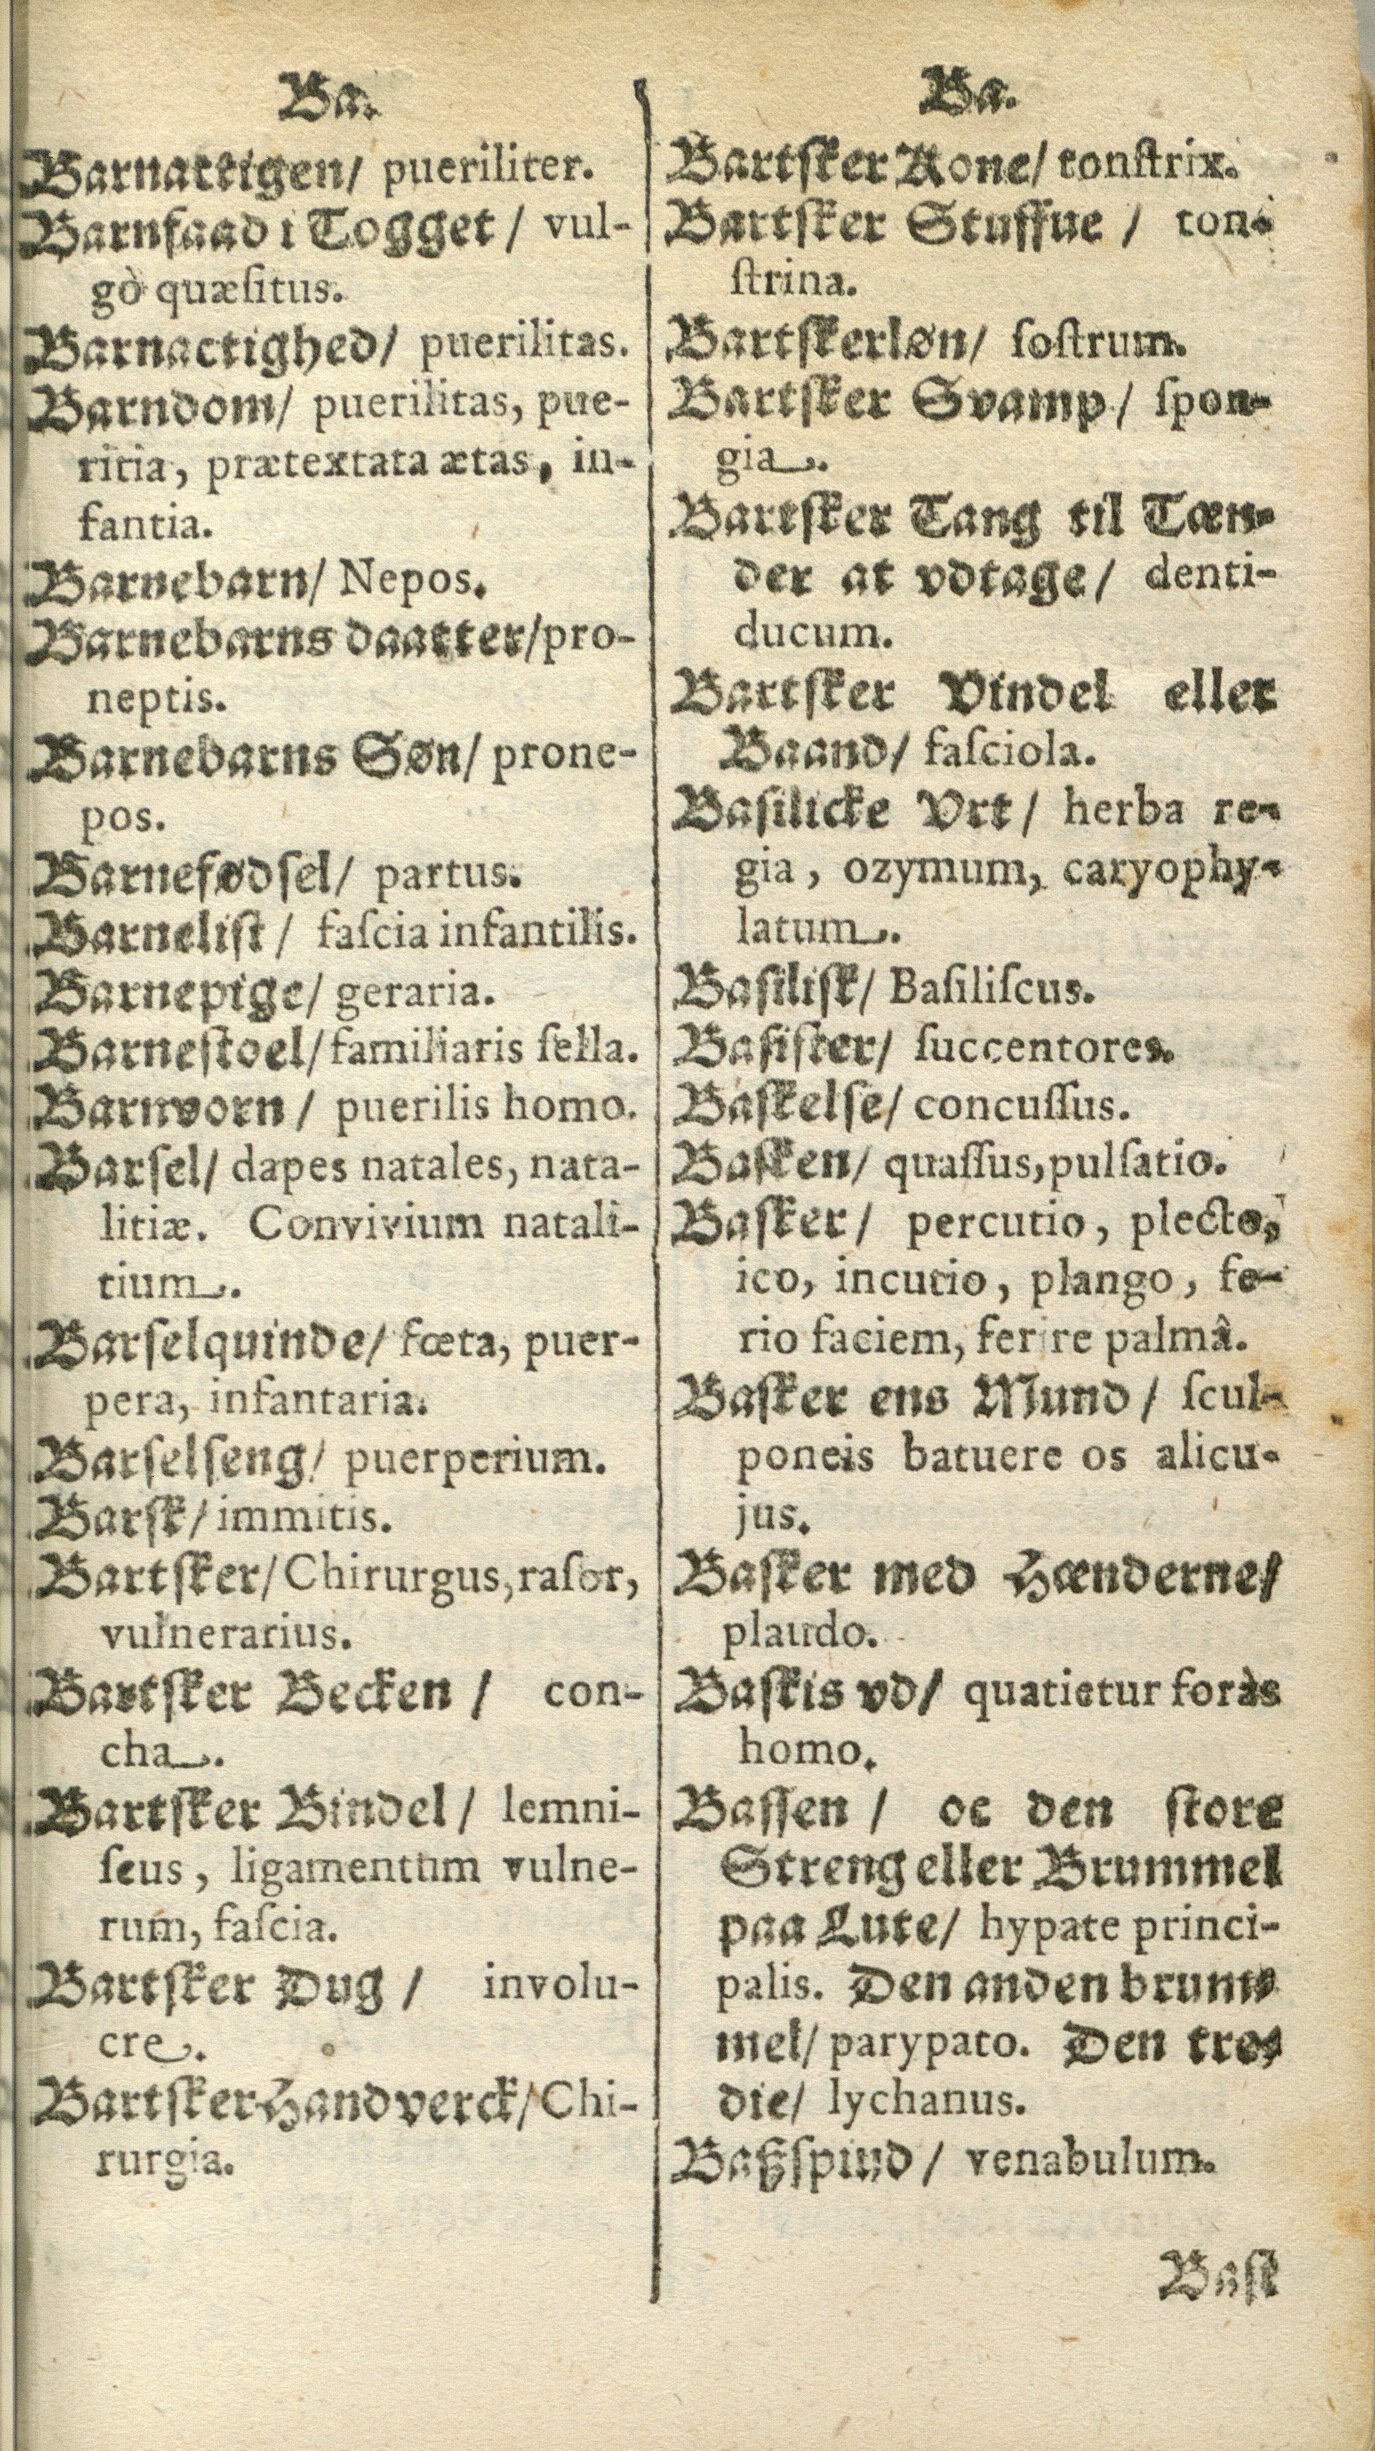 Ba.
Barnattigen/ pueriliter.
Barnfaad i Togget / vul-
gò quæſitus.
Barnactighed/ puerilitas.
Barndom/ puerilitas, pue-
ritia, prætextata ætas, in-
fantia.
Barnebarn/ Nepos.
Barnebarns daatter/pro-
neptis.
Barnebarns Søn/ prone-
pos.
Barnefødſel/ partus.
Barneliſt / faſcia infantilis.
Barnepige/ geraria.
Barneſtoel/familiaris ſella.
Barnvorn / puerilis homo.
Barſel/ dapes natales, nata-
litiæ. Convivium natali-
tium.
Barſelquinde/ fœta, puer-
pera, infantaria.
Barſelſeng/ puerperium.
Barſk/immitis.
Bartſker/Chirurgus,raſor,
vulnerarius.
Bartſker Becken / con-
cha.
Bartſker Bindel/ lemni-
ſcus, ligamentum vulne-
rum, faſcia.
Bartſker Dug / involu-
cre.
Bartſker Handverck/Chi-
rurgia.
Ba.
Bartſker Kone/ tonſtrix.
Bartſker Stuffue / ton-
ſtrina.
Bartſkerløn/ ſoſtrum.
Bartſker Svamp/ ſpon-
gia.
Bartſker Tang til Tæn-
der at vdtage/ denti-
ducum.
Bartſker Vindel eller
Baand/ faſciola.
Baſilicke Vrt/ herba re-
gia, ozymum, caryophy-
latum.
Baſiliſk/ Baſiliſcus.
Baſiſter/ ſuccentores.
Baſkelſe/ concuſſus.
Baſken/ quaſſus,pulſatio.
Baſker/ percutio, plecto,
ico, incutio, plango, fe-
rio faciem, ferire palmâ.
Baſker ens Mund/ ſcul-
poneis batuere os alicu-
jus.
Baſker med Hænderne/
plaudo.
Baſkis vd/ quatietur foràs
homo.
Baſſen / oc den ſtore
Streng eller Brummel
paa Lute/ hypate princi-
palis. Den anden brum-
mel/ parypato. Den tre-
die/ lychanus.
Baßſpiud/ venabulum.
Baſk